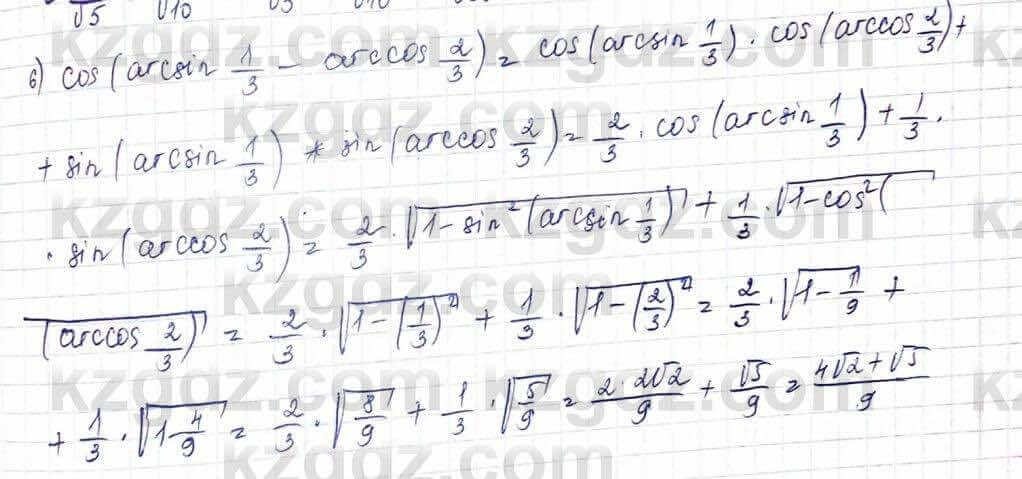 √5 √10 √5 √10
б) cos(arcsin 1/3 - arccos 2/3) = cos(arcsin 1/3) · cos(arccos 2/3) +
+ sin(arcsin 1/3) * sin(arccos 2/3) = 2/3 · cos(arcsin 1/3) + 1/3 ·
· sin(arccos 2/3) = 2/3 · √(1 - sin²(arcsin 1/3)) + 1/3 · √(1 - cos²(
(arccos 2/3)) = 2/3 · √(1 - (1/3)²) + 1/3 · √(1 - (2/3)²) = 2/3 · √(1 - 1/9) +
+ 1/3 · √(1 - 4/9) = 2/3 · √(8/9) + 1/3 · √(5/9) = 2·2√2/9 + √5/9 = 4√2 + √5/9
kzgdz.com